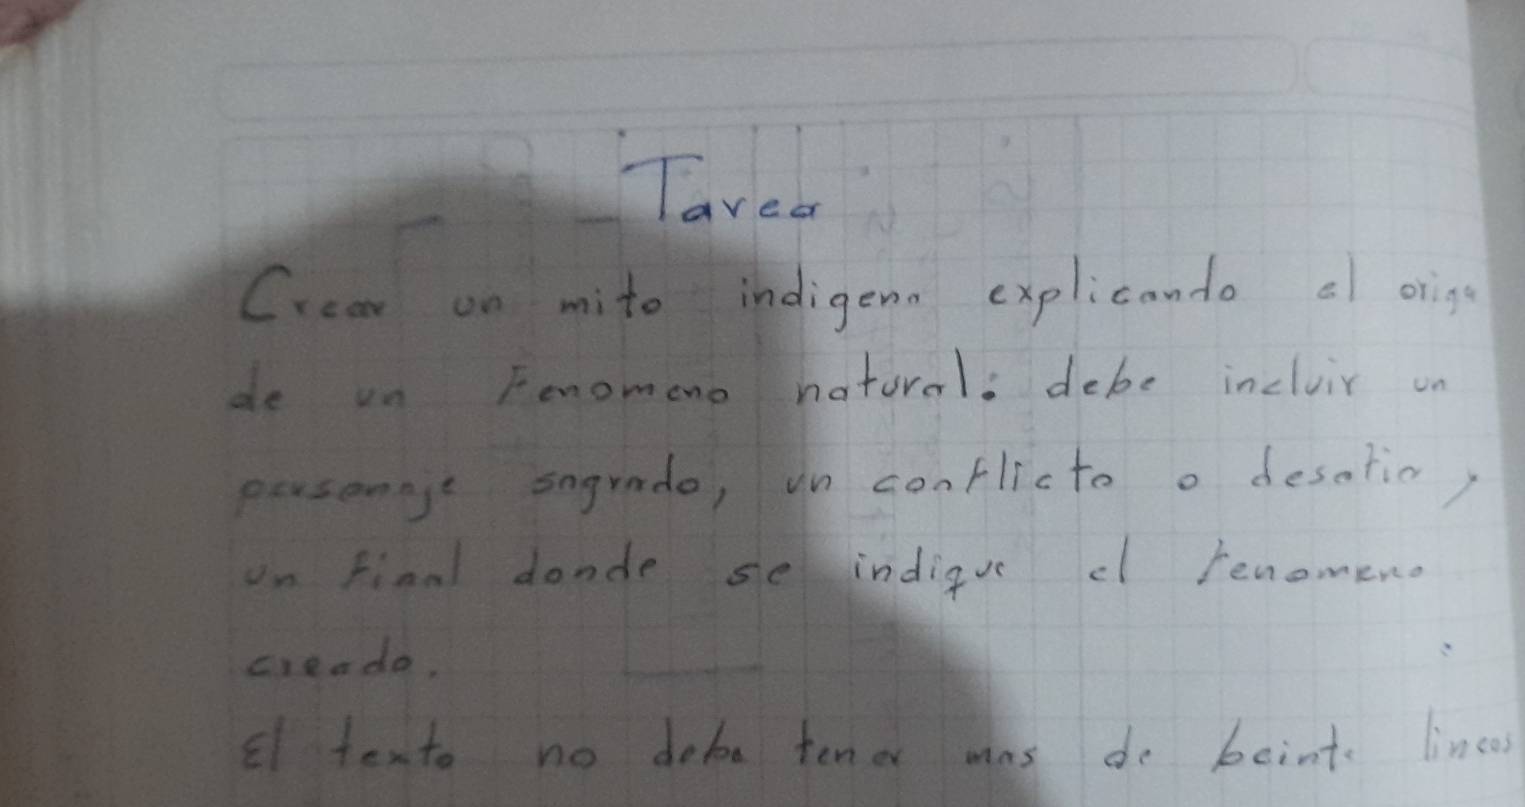 Tarea
Crear un mito indigena explicando el orige
de un Fenomeno natural: debe incluir un
personaje sagrado, un conflicto o desafio,
un final donde se indique el fenomeno
creado.
El texto no debe tener mas de beinte lineas